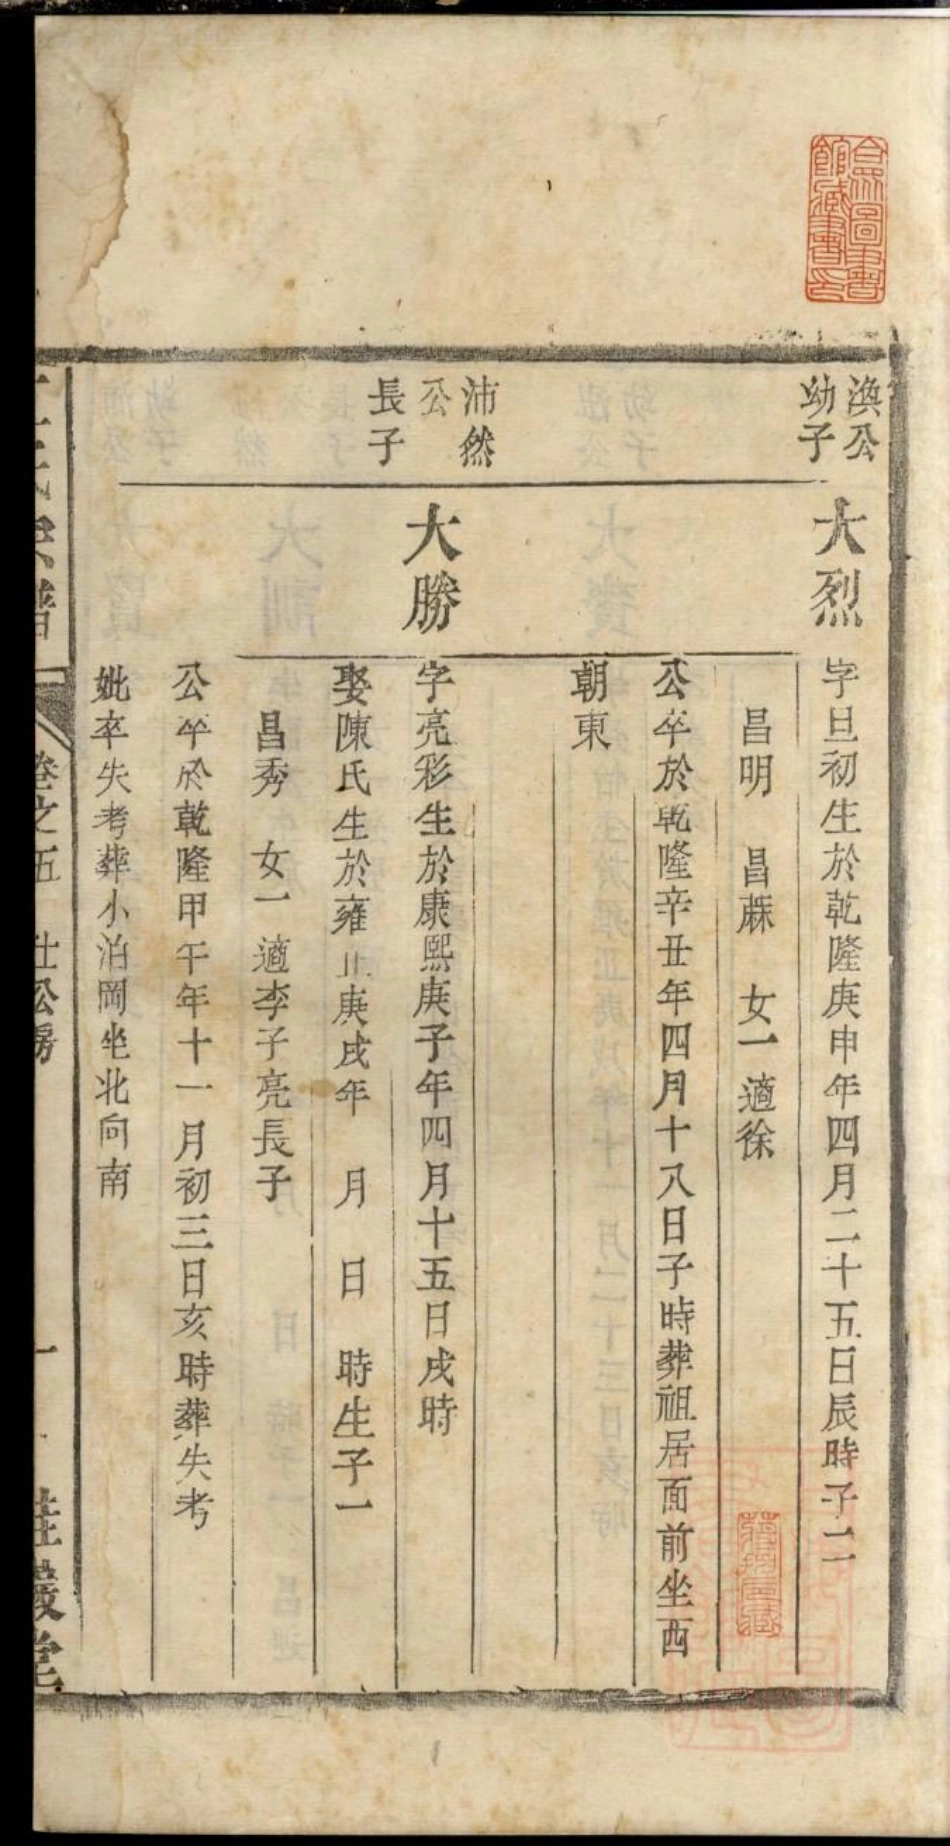 合眾圖書
館藏書印
渙公
幼子
大烈
字旦初生於乾隆庚申年四月二十五日辰時子二
昌明 昌蔴 女一適徐
公卒於乾隆辛丑年四月十八日子時葬祖居面前坐西
朝東
沛然
公
長子
大勝
字亮彩生於康熙庚子年四月十五日戌時
娶陳氏生於雍正庚戌年 月 日 時生子一
昌秀 女一適李子亮長子
公卒於乾隆甲午年十一月初三日亥時葬失考
妣卒失考葬小泊岡坐北向南
氏宗譜
卷之五
仕公房
一